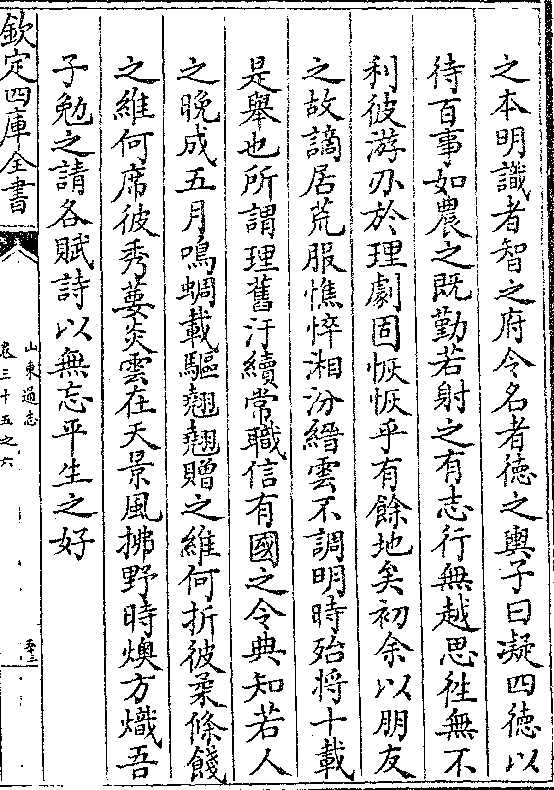 之本明識者智之府令名者徳之輿子曰凝四徳以
待百事如農之既勤若射之有志行無越思徃無不
利彼游刃於理劇固恢恢乎有餘地矣初余以朋友
之故謫居荒服憔悴湘汾縉雲不調明時殆將十載
是舉也所謂理舊汙續常職信有國之令典知若人
之晩成五月鳴蜩載驅翹翹贈之維何折彼柔條餞
之維何席彼秀葽炎雲在天景風拂野時燠方熾吾
子勉之請各賦詩以無忘平生之好
欽定四庫全書
山東通志
卷三十五之六